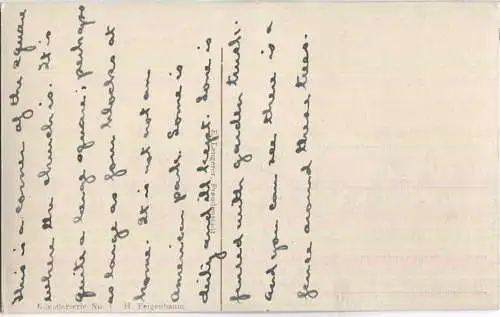 This is a corner of the square
where the church is. It is
quite a large square; perhaps
as large as four blocks at
home. It is not not an
American park. Some is
dirty and ill kept. Some is
fenced with garden truck.
and you can see there is a
fence around these trees.
Künstlerserie No.
H. Feigenbaum